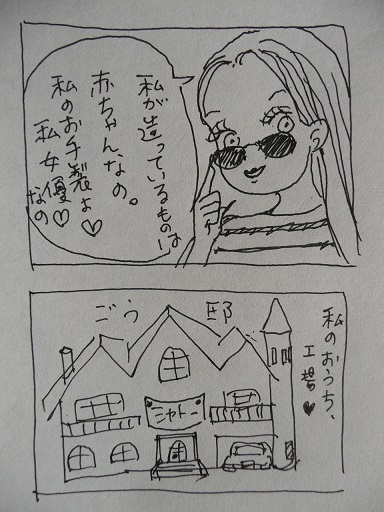 私が造っているものはー
赤ちゃんなの。
私のお手製よ♡
私女優♡なの
私のおうち、
工場♥
ごう邸
シャトー